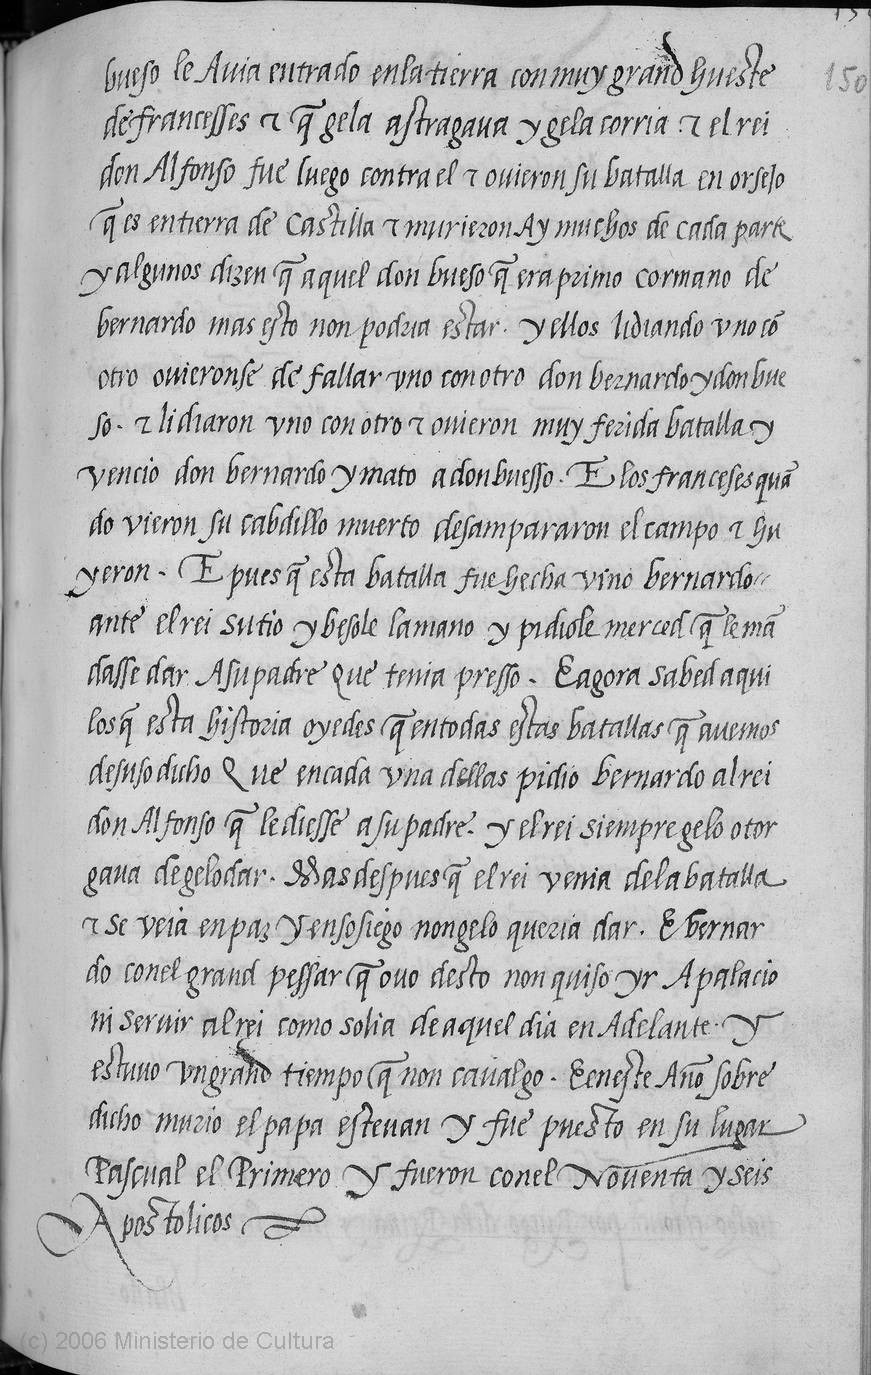 150
bueso le Auia entrado enla tierra con muy grand hueste
de francesses ⁊ q̃ gela astragaua y gela corria ⁊ el rei
don Alfonso fue luego contra el ⁊ ouieron su batalla en orsejo
q̃ es en tierra de Castilla ⁊ murieron Ay muchos de cada parte
y algunos dizen q̃ aquel don bueso q̃ era primo cormano de
bernardo mas esto non podria estar. y ellos lidiando vno cõ
otro ouieronse de fallar vno con otro don bernardo y don bue
so. ⁊ lidiaron vno con otro ⁊ ouieron muy ferida batalla y
vencio don bernardo y mato a don buesso. E los franceses quã
do vieron su cabdillo muerto desampararon el campo ⁊ hu
yeron. E pues q̃ esta batalla fue hecha vino bernardo
ante el rei su tio y besole la mano y pidiole merced q̃ le mã
dasse dar A su padre Que tenia presso. E agora sabed aqui
los q̃ esta historia oyedes q̃ en todas estas batallas q̃ auemos
desuso dicho Que en cada vna dellas pidio bernardo al rei
don Alfonso q̃ le diesse a su padre. y el rei siempre gelo otor
gaua de gelo dar. Mas despues q̃ el rei venia dela batalla
⁊ se veia en paz y en sosiego non gelo queria dar. E bernar
do con el grand pessar q̃ ouo desto non quiso yr A palacio
ni seruir al rei como solia de aquel dia en Adelante. Y
estuuo vn grand tiempo q̃ non caualgo. E en este Año sobre
dicho murio el papa esteuan y fue puesto en su lugar
Pascual el Primero y fueron con el Nouenta y seis
Apostolicos
(c) 2006 Ministerio de Cultura